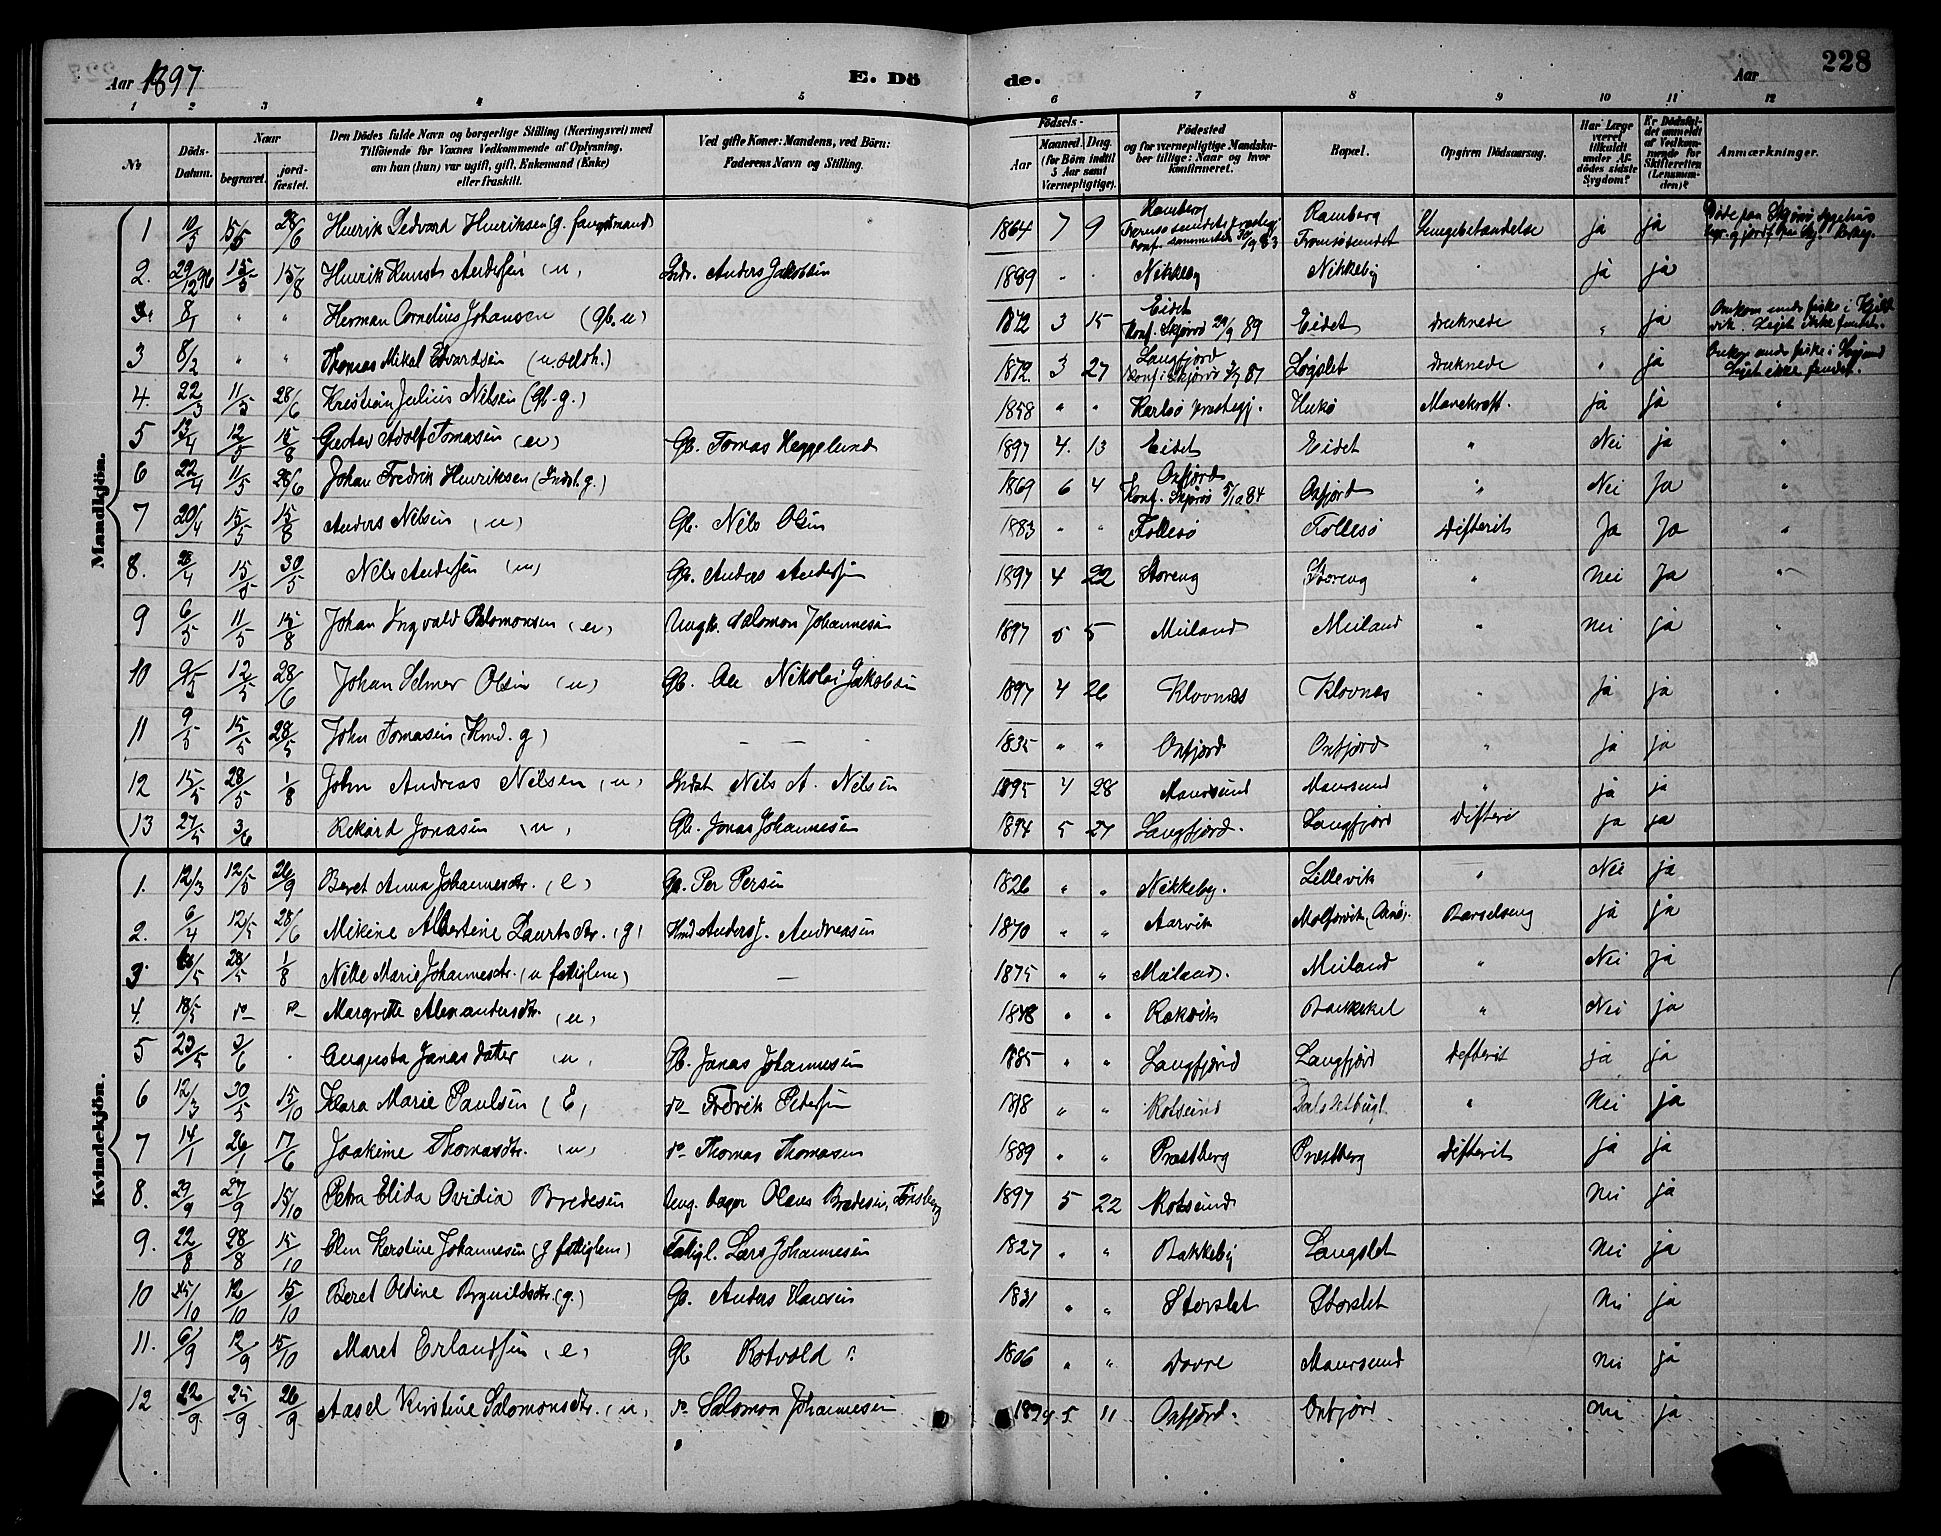 Aar 1897
E. Dö
de.
Aar
228
1 2 3 4 5 6 7 8 9 10 11 12
No
Döds-Datum.
Naar
begravet.
jord-fæstet.
Den Dödes fulde Navn og borgerlige Stilling (Næringsvei) med
Tilföiende for Voxnes Vedkommende af Oplysning,
om han (hun) var ugift, gift, Enkemand (Enke)
eller fraskilt.
Ved gifte Koner: Mandens, ved Börn:
Faderens Navn og Stilling.
Födsels-
Aar
Maaned. Dag.
(for Börn indtil
5 Aar samt
Værnepligtige).
Födested
og for værnepligtige Mandska-
ber tillige: Naar og hvor
konfirmeret.
Bopæl.
Opgiven Dödsaarsag.
Har Læge
været
tilkaldt
under Af-
dödes sidste
Sygdom?
Er Dödsfal-
det anmeldt
af Vedkom-
mende for
Skifteretten
(Lensman-
den)?
Anmærkninger.
Mandkjön.
1 10/3 15/5 28/6 Henrik Pedvard Henriksen (g. fangstmand) 1864 7 9 Ramberg Ramberg Tromsösundet ja ja
2. 29/12 96 15/5 15/8 Henrik Kunst Andersen (u) Indr. Anders Jakobsen 1889 Nikkeby Nikkeby ja ja
3. 8/1 " " Herman Cornelius Johansen (Gb. u) 1872 3 15 Eidet Konf. Skjervö 29/9 89 Eidet druknede " ja Omkom under fiske i
Liget ikke fundet.
3 8/2 " " Thomas Mikal Edvardsen 1872 3 27 Langfjord Løgslet druknede " ja Omkom under fiske i
Liget ikke fundet.
4. 22/3 11/5 28/6 Kristian Julius Nilsen (Gb. g.) 1858 " " Karlsö præstegj. Hukö Mavekræft. ja ja "
5 13/4 12/5 15/8 Gustav Adolf Tomasen (u) Gb. Tomas Heggelund 1897 4. 13 Eidet Eidet " Nei ja "
6 22/4 11/5 28/6 Johan Fredrik Henriksen (Indst. g.) 1869 6 4 Oxfjord Konf. Skjervö 5/10 84 Oxfjord " Nei Ja "
7 20/4 15/5 15/8 Anders Nilsen (u) Gb. Nils Olsen 1883 " " Follesö Follesö Difterit Ja Ja "
8. 28/4 15/5 30/5 Nils Andersen (u) Gb. Anders Andersen 1897 4 22 Storeng Storeng " Nei Ja "
9 6/5 11/5 15/8 Johan Ingvald Salomonsen (u) Ungk. Salomon Johannesen 1897 5 5 Meiland Meiland " Nei ja "
10 9/5 12/5 28/6 Johan Selmer Olsen (u) Gb. Ole Nikolai Jakobsen 1897 4 26 Klovnes Klovnes " ja ja "
11 9/5 15/5 28/5 John Tomasen (Kmd. g) – – – 1835 " " Oxfjord Oxfjord " ja ja
12 15/5 28/5 1/8 John Andreas Nilsen (u) Indst Nils A. Nilsen 1895 4 28 Maursund Maursund " ja ja
13 27/5 3/6 Rikard Jonasen (u) Gb. Jonas Johannesen 1894 5 27 Langfjord. Langfjord Difteri ja ja
Kvindekjön.
1. 12/3 12/5 26/9 Beret Anna Johannesdtr. (e) Gb. Per Persen 1826 " " Nikkeby. Lillevik " Nei ja
2. 6/4 12/5 28/6 Mikine Albertine Lauritsdtr. (g) Kmd Anders J. Andreasen 1870 " " Aarvik Barselseng ja ja
3. 28/5 1/8 Nille Marie Johannesdtr. (u fattiglem) – 1875 " " Meiland. Meiland " Nei ja
4. 18/5 do do Margrette Alexandersdtr. (u) " " Rakvik Bakkekel " Nei ja
5 23/5 3/6 Augusta Jonas datter (u) Gb. Jonas Johannesen 1885 " " Langfjord Langfjord Difterit ja ja
6 12/3 30/5 15/10 Klara Marie Paulsen (E) do Fredrik Petersen " " Rotsund " Nei ja
7 14/1 26/1 17/6 Joakime Thomasdtr. (u) do Thomas Thomasen 1889 " " Præstberg Præstberg Difterit ja ja
8. 23/9 27/9 15/10 Petra Elida Ovidia Bredesen Ung. bager Olaus Bredesen, Tönsberg 1897 5 22 Rotsund Nei ja
9. 22/8 28/8 15/10 Elen Kerstine Johannesen (g fattiglem) Fattigl. Lars Johannesen 1827 " " Bakkeby Langslet Nei ja
10 12/10 15/10 Beret Oldine Brynildsdtr (g.) Gb. Anders Hansen 1831 " " Storslet Storslet Nei ja
11. 6/9 12/9 15/10 Maret Erlandsen (e) Gb Rotvold ? 1806 " " Dovre Maursund Nei ja
12 22/9 25/9 26/9 Aasel Kirstine Salomonsdtr. (u) do Salomon Johannesen 5 11 Oxfjord. Oxfjord Nei ja